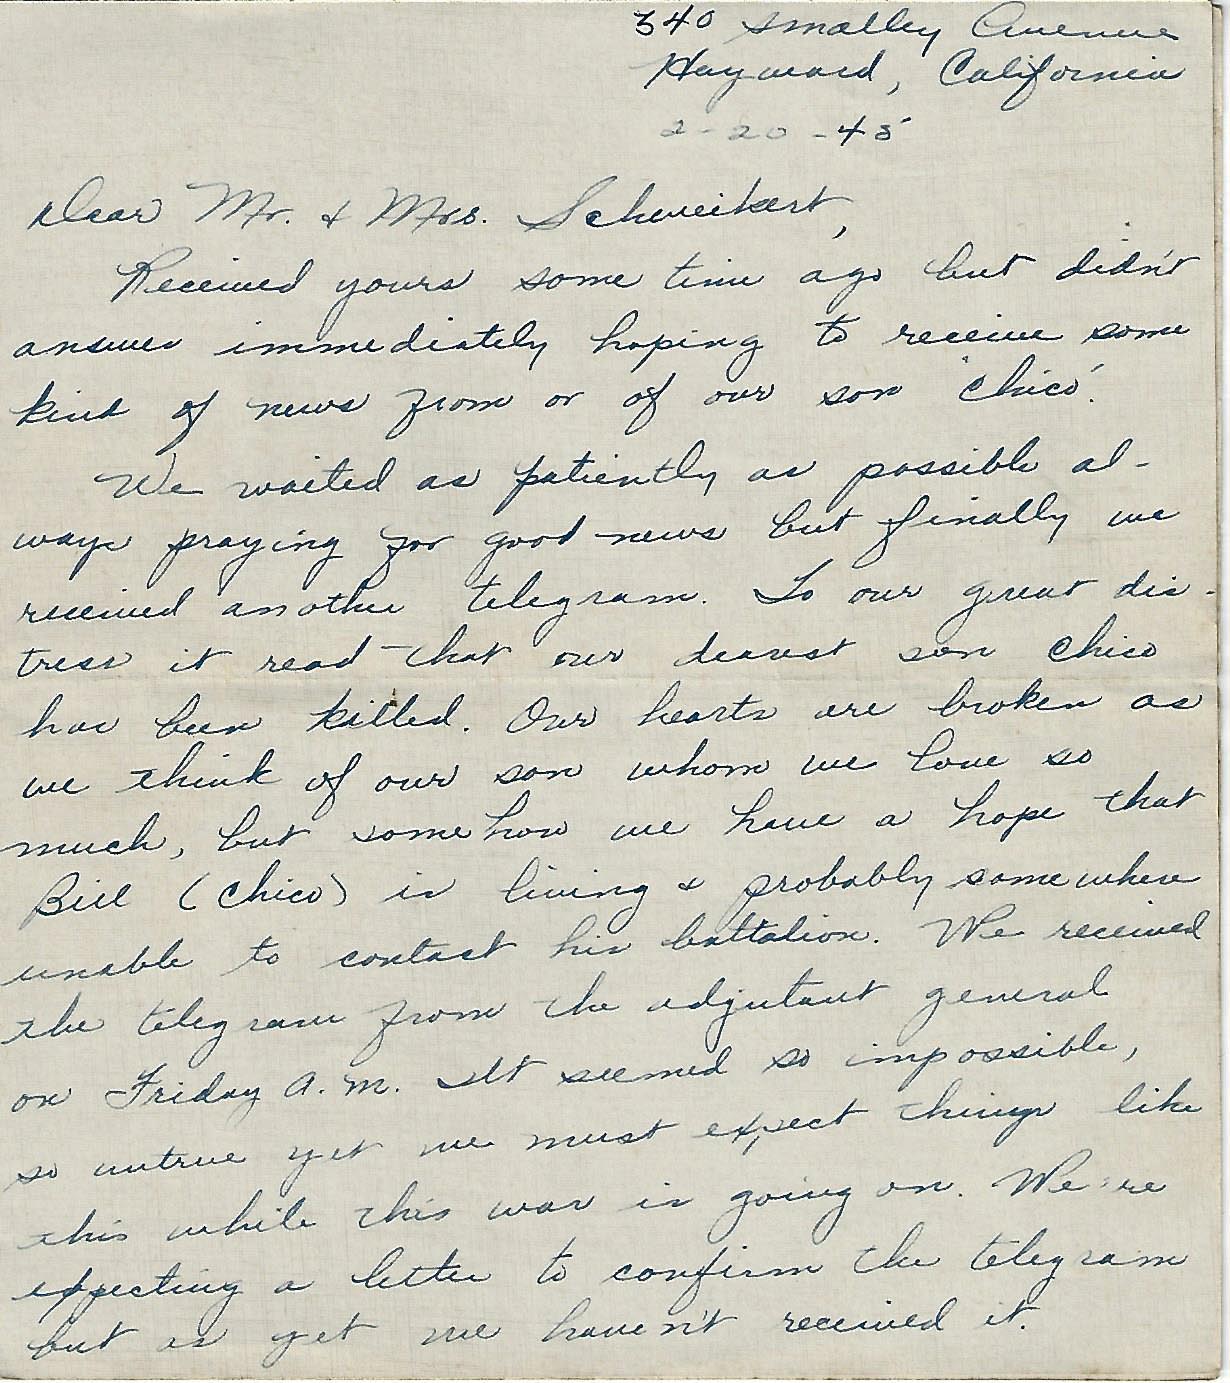 340 Smalley Avenue
Hayward, California
2-20-45
Dear Mr. & Mrs. Schweikert,
Received yours some time ago but didn't
answer immediately hoping to receive some
kind of news from or of our son 'Chico'.
We waited as patiently as possible al-
ways praying for good news but finally we
received another telegram. To our great dis-
tress it read that our dearest son Chico
has been killed. Our hearts are broken as
we think of our son whom we love so
much, but somehow we have a hope that
Bill (Chico) is living & probably somewhere
unable to contact his battalion. We received
the telegram from the adjutant general
on Friday A.M. It seemed so impossible,
so untrue yet we must expect things like
this while this war is going on. We're
expecting a letter to confirm the telegram
but as yet we haven't received it.